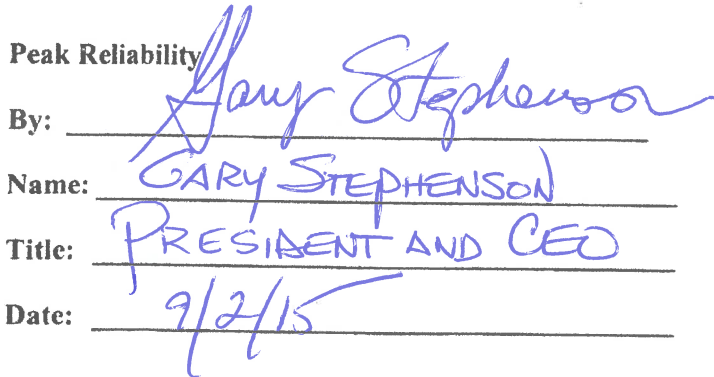 Peak Reliability
By: Gary Stephenson
Name: GARY STEPHENSON
Title: PRESIDENT AND CEO
Date: 9/2/15